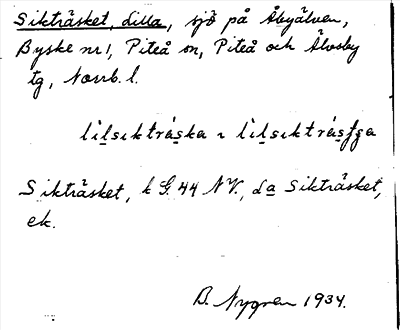 Sikträsket, Lilla, sjö på Åbyälven,
Byske nr 1, Piteå sn, Piteå och Älvsby
tg, Norrb. l.
li̱lsıkträ́s̱ka ~ li̱lsıktrás̱ʃga
Sikträsket, k G. 44 NV., La Sikträsket,
ek.
B. Nygren 1934.